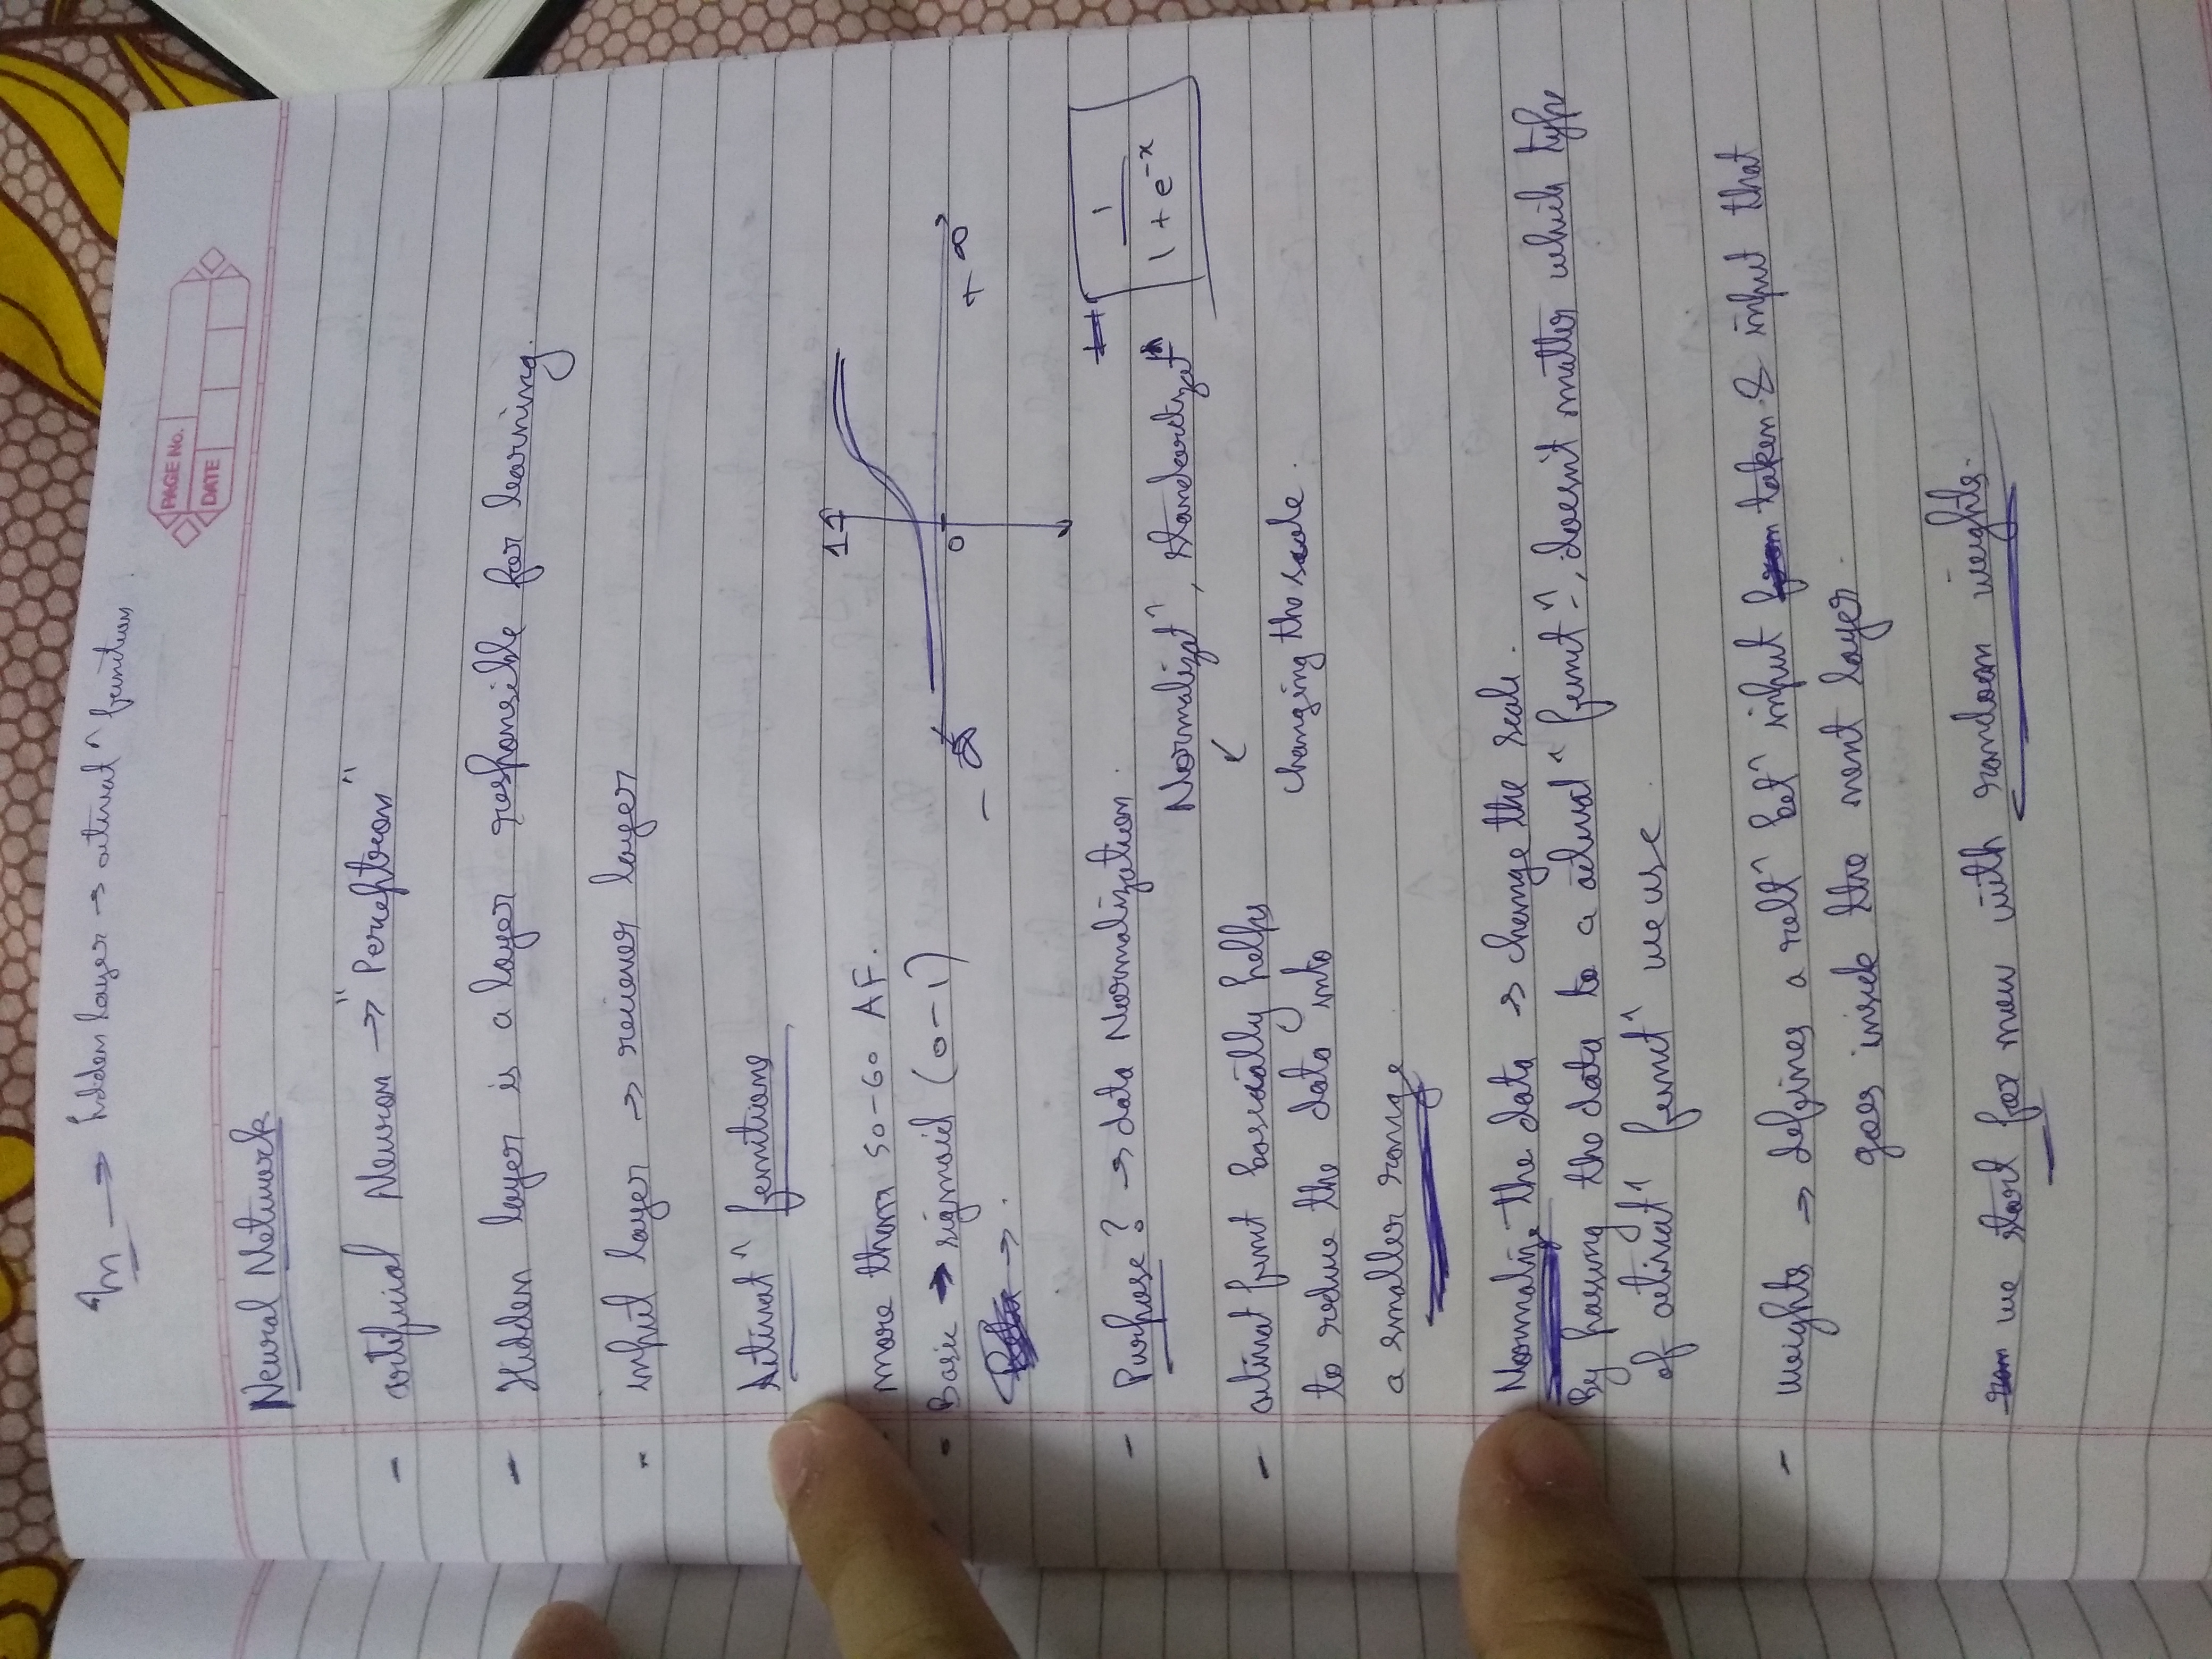 → hidden layer → activat^n function
PAGE No.
DATE
Neural Network
- artificial Neuron → "Perceptron"
- Hidden layer is a layer responsible for learning.
- input layer → reciever layer
Activat^n functions
more than 50-60 AF.
- Basic → sigmoid (0-1)
→ .
1
0
-∞
+∞
- Purpose? → data Normalization.
Normalizat^n, standardizat^n
1
1 + e^-x
- activat funct basically helps
to reduce the data into
changing the scale.
a smaller range
Normalize the data → change the scale.
By passing the data to a activat^n funct^n, doesn't matter which type
of activat^n funct^n we use.
- weights → defines a relt^n bet^n input taken & input that
goes inside the next layer.
we start for now with random weights.